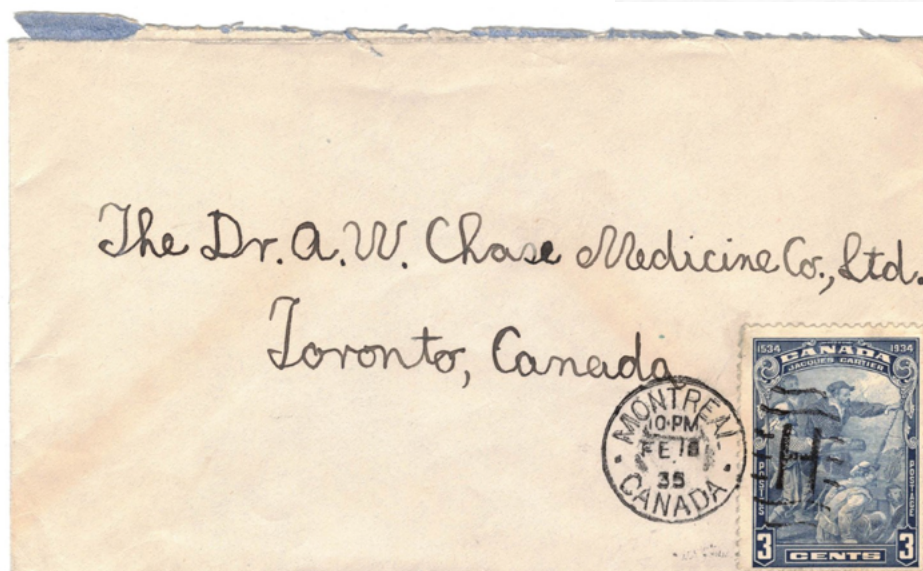 The Dr. A. W. Chase Medicine Co., Ltd.
Toronto, Canada
MONTREAL
10·PM
FE 18
35
CANADA
1534 1934
CANADA
JACQUES CARTIER
POSTES POSTAGE
H
3 CENTS 3